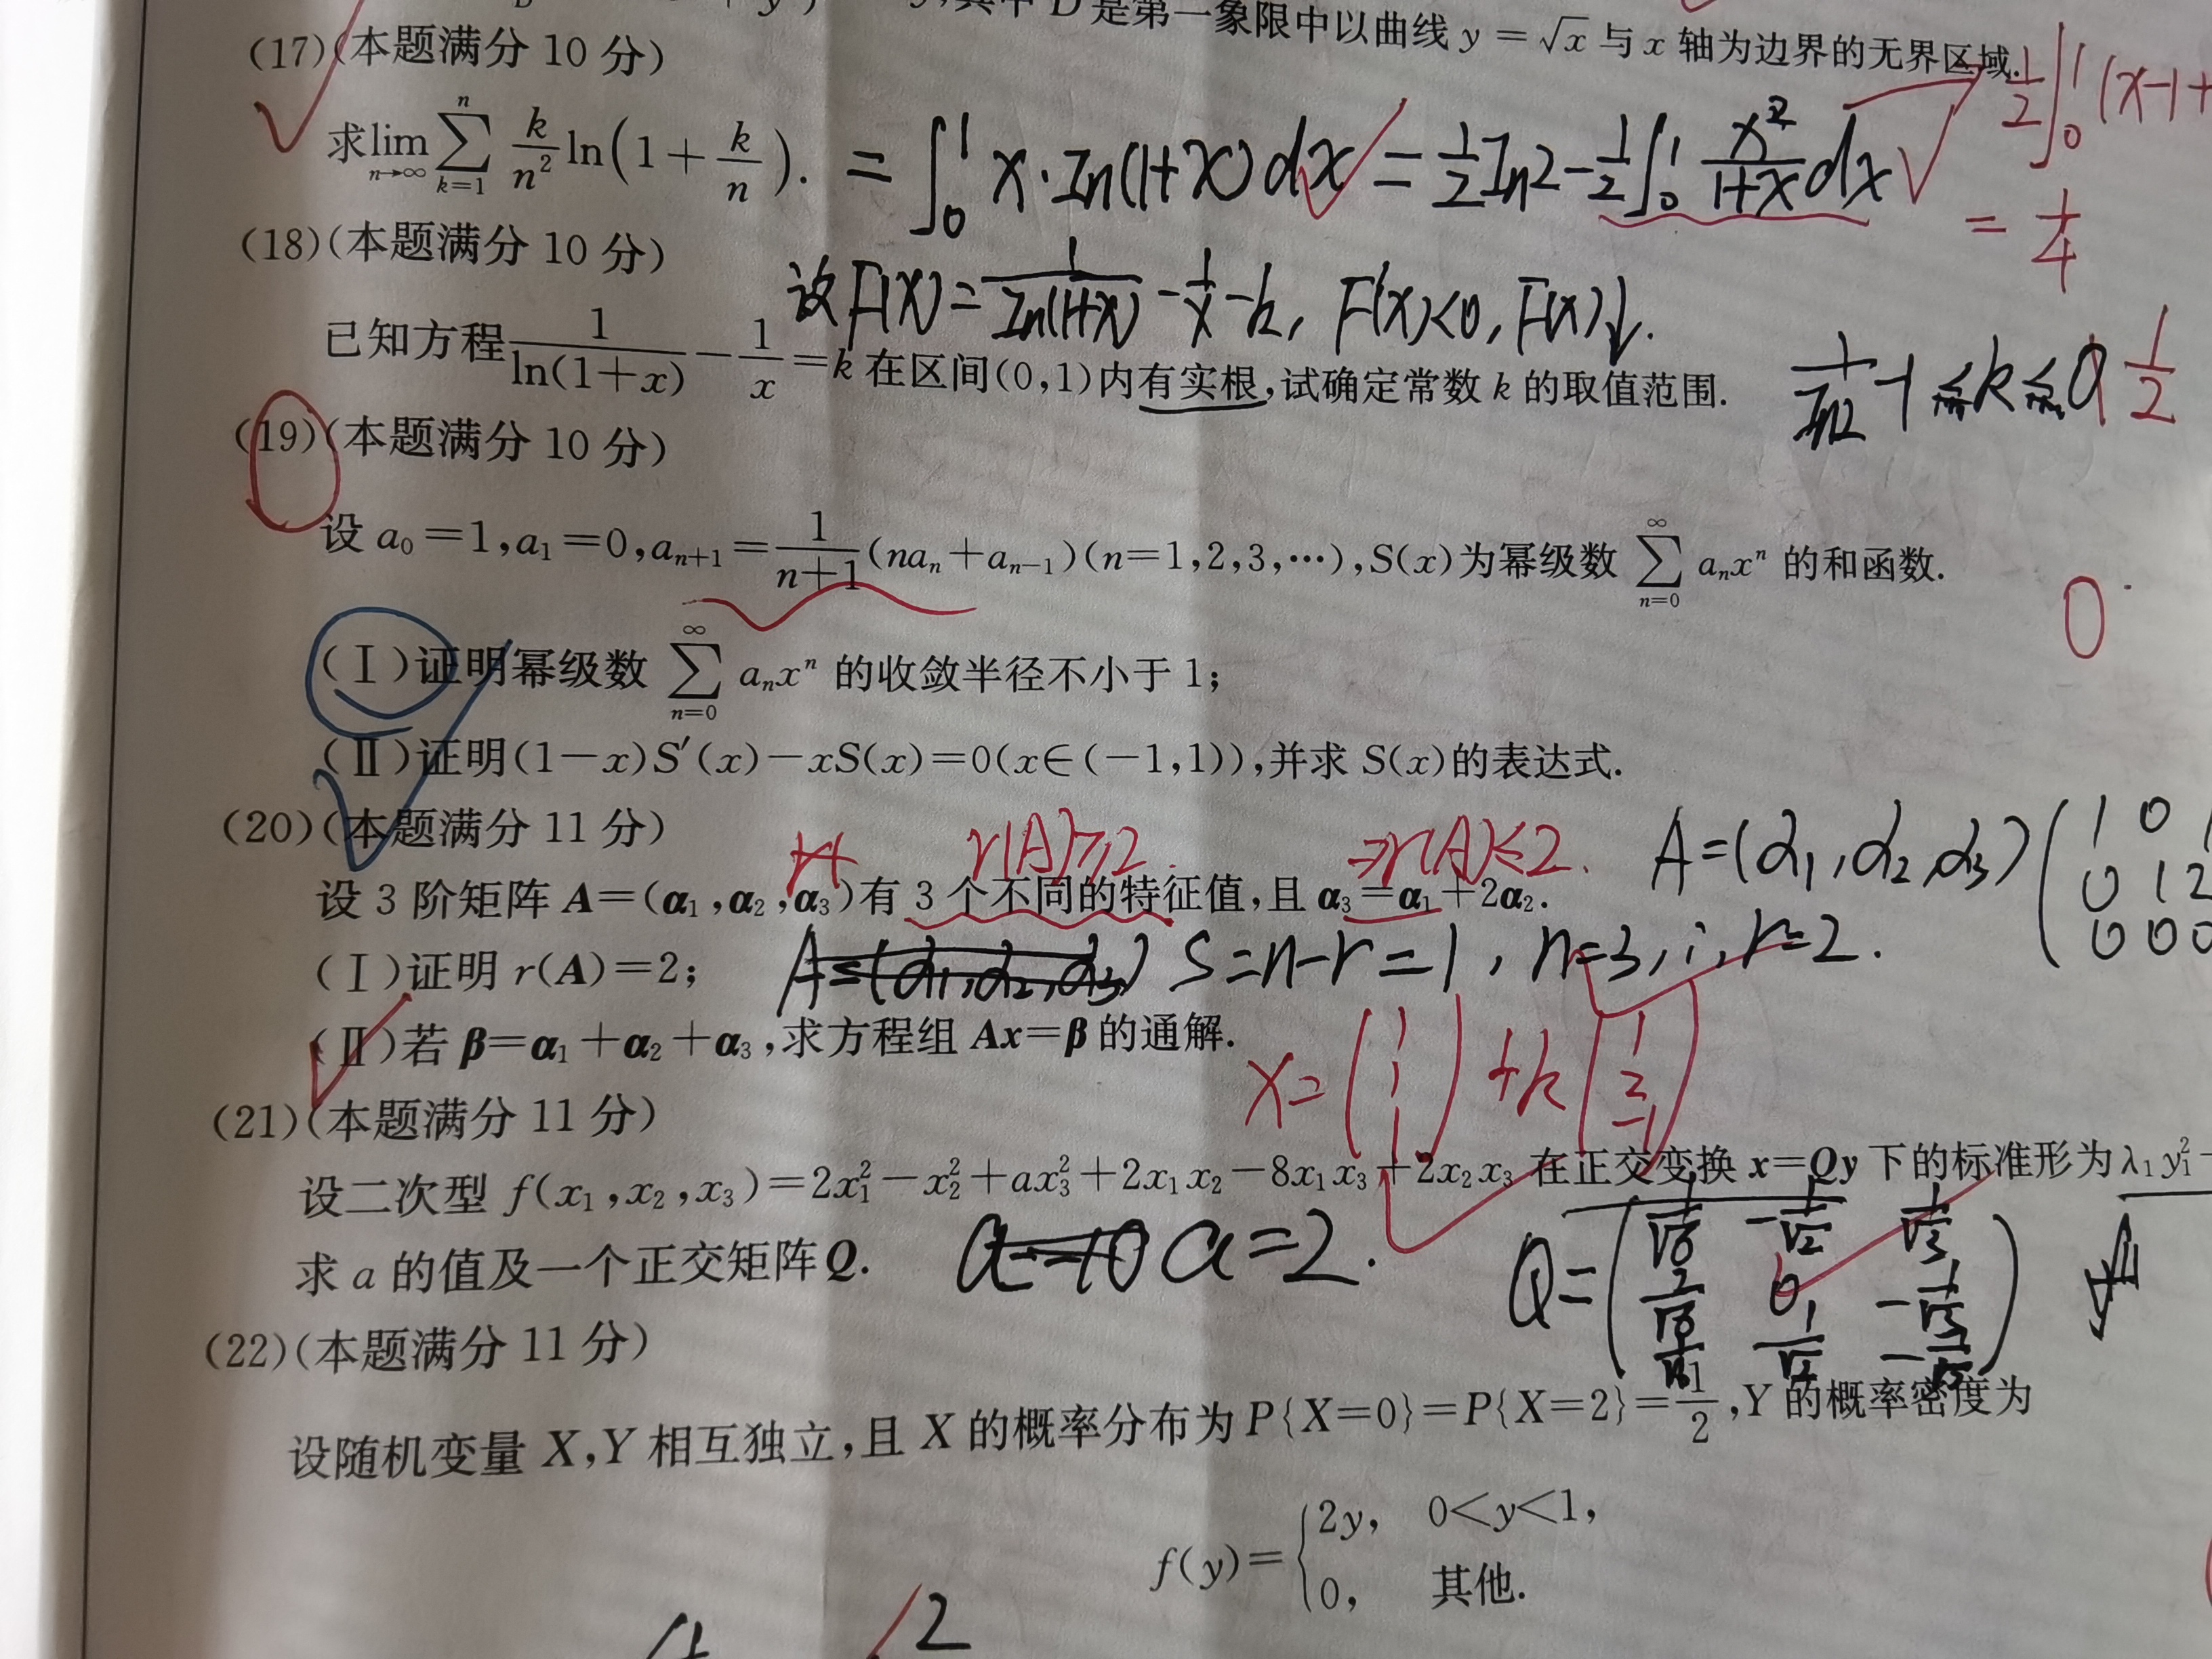 y,其中 D 是第一象限中以曲线 y = √x 与 x 轴为边界的无界区域.
(17)(本题满分 10 分)
1/2∫₀¹(x-1+
求 lim_{n→∞} ∑_{k=1}^{n} k/n² ln(1+k/n). = ∫₀¹ x·ln(1+x)dx = 1/2 ln2 - 1/2∫₀¹ x²/(1+x) dx
= 1/4
(18)(本题满分 10 分)
设 F(x) = 1/ln(1+x) - 1/x - k, F'(x)<0, F(x)↓.
已知方程 1/ln(1+x) - 1/x = k 在区间(0,1)内有实根,试确定常数 k 的取值范围.
1/ln2 - 1 ≤ k ≤ 0 1/2
(19)(本题满分 10 分)
设 a₀=1,a₁=0,aₙ₊₁= 1/(n+1) (naₙ+aₙ₋₁)(n=1,2,3,…),S(x)为幂级数 ∑_{n=0}^{∞} aₙxⁿ 的和函数.
0
(Ⅰ)证明幂级数 ∑_{n=0}^{∞} aₙxⁿ 的收敛半径不小于 1;
(Ⅱ)证明(1-x)S′(x)-xS(x)=0(x∈(-1,1)),并求 S(x)的表达式.
(20)(本题满分 11 分)
r(A)≥2 ⇒r(A)≤2. A=(α₁,α₂,α₃)(1 0 1
0 1 2
0 0 0
设 3 阶矩阵 A=(α₁,α₂,α₃)有 3 个不同的特征值,且 α₃=α₁+2α₂.
(Ⅰ)证明 r(A)=2; A=(α₁,α₂,α₃) S=n-r=1, n=3, ∴ r=2.
(Ⅱ)若 β=α₁+α₂+α₃,求方程组 Ax=β 的通解.
x=(1 1 1)+k(1 2 -1)
(21)(本题满分 11 分)
设二次型 f(x₁,x₂,x₃)=2x₁²-x₂²+ax₃²+2x₁x₂-8x₁x₃+2x₂x₃ 在正交变换 x=Qy 下的标准形为 λ₁y₁²
求 a 的值及一个正交矩阵 Q. a=2.
Q=(1/√6 -1/√2 1/√3
2/√6 0 -1/√3
1/√6 1/√2
(22)(本题满分 11 分)
设随机变量 X,Y 相互独立,且 X 的概率分布为 P{X=0}=P{X=2}=1/2,Y 的概率密度为
f(y)={2y, 0<y<1,
0, 其他.
2